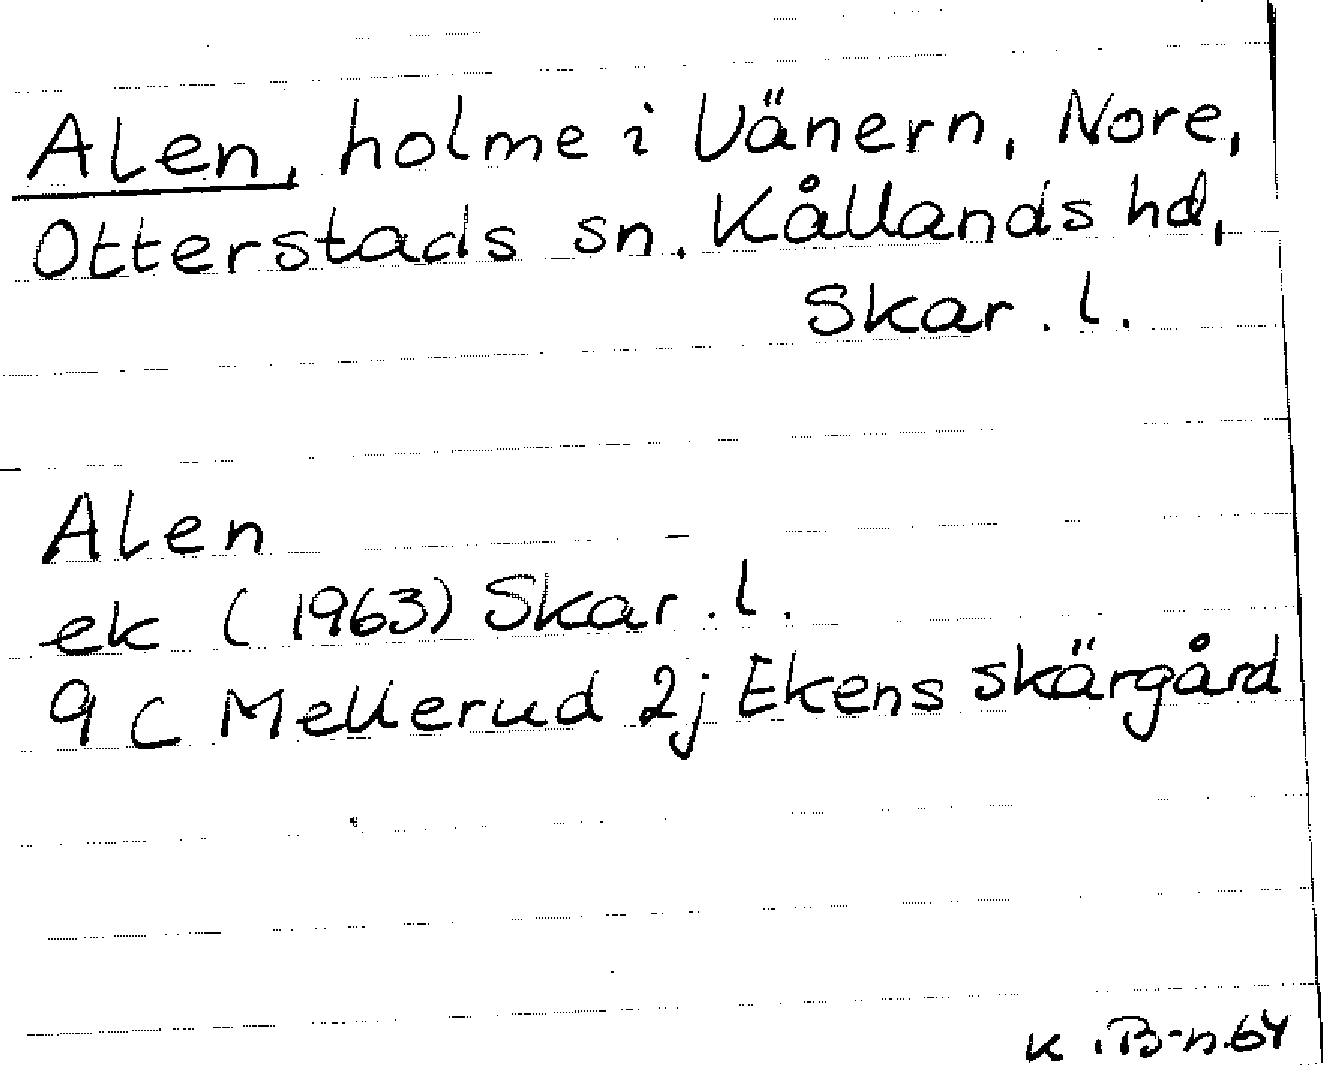 Alen, holme i Vänern, Nore,
Otterstads sn. Kållands hd,
Skar. l.
Alen
ek (1963) Skar. l.
9 C Mellerud 2j Ekens skärgård
K. B-n 64